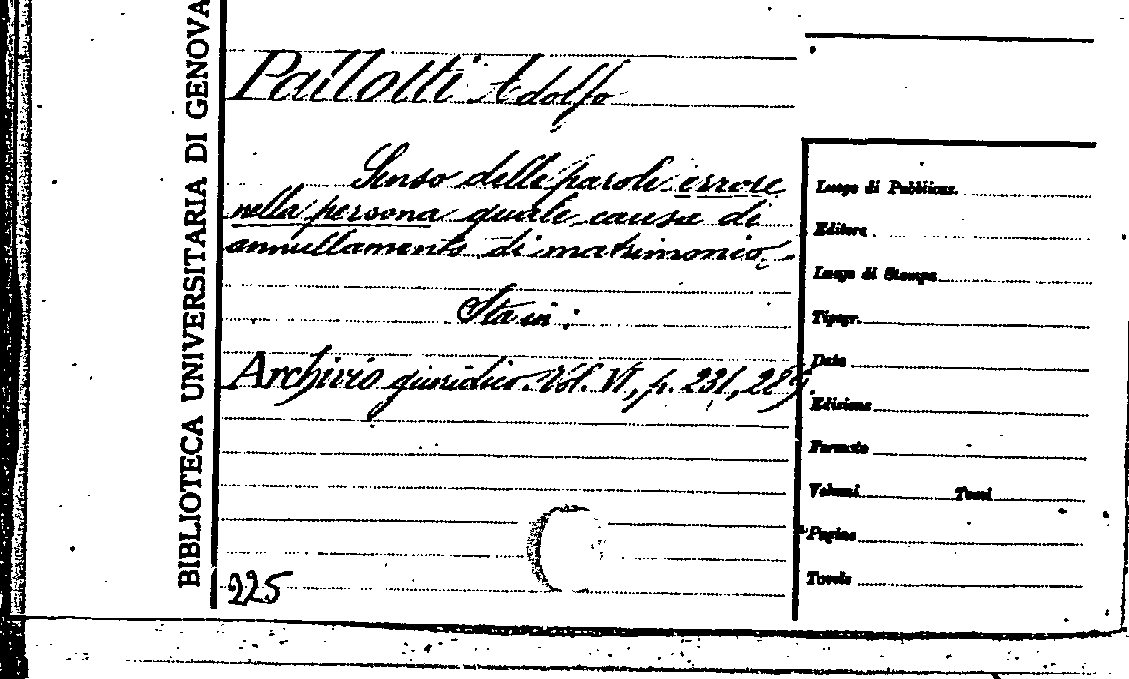 BIBLIOTECA UNIVERSITARIA DI GENOVA
Pallotti Adolfo
Senso delle parole errore
nella persona quale causa di
annullamento di matrimonio.
Sta in:
Archivio giuridico. Vol. VI, p. 231, 289.
225
Luogo di Pubblicaz.
Editore
Luogo di Stampa
Tipogr.
Data
Edizione
Formato
Volumi Tomi
Pagine
Tavole